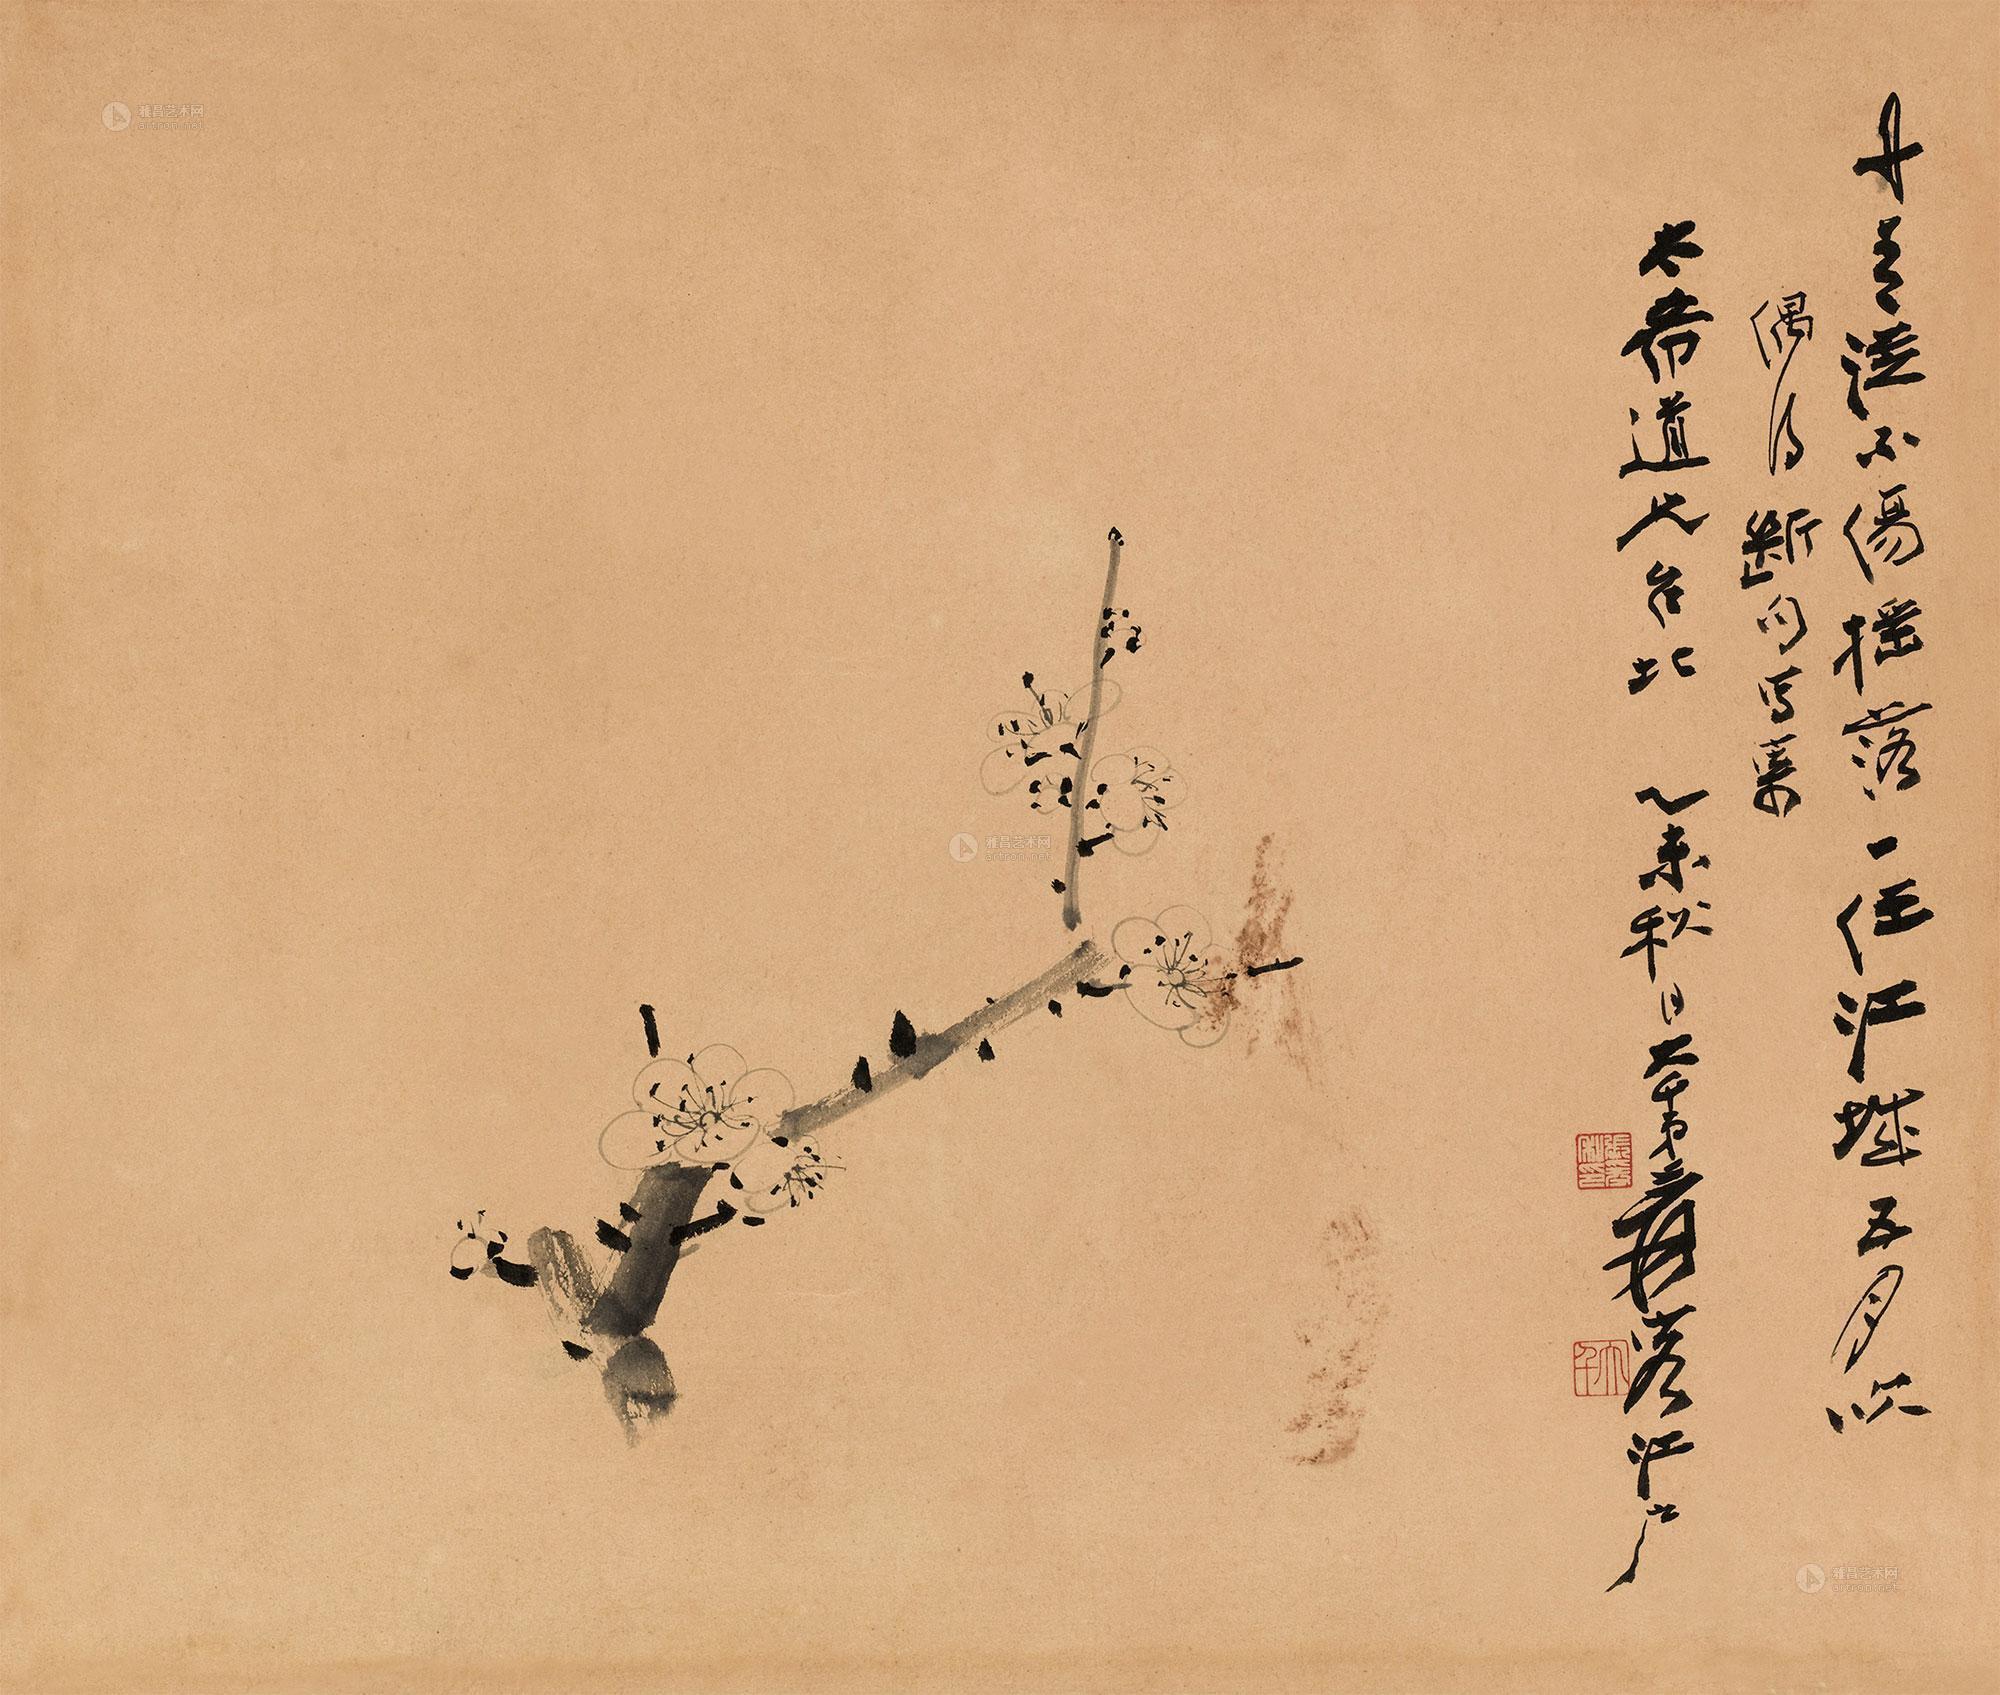 丹青從不傷搖落一任江城五月吹
偶得斷句寫寄
太希道兄台北 乙未秋日大千弟爰客江戶
大千
雅昌艺术网
artron.net
雅昌艺术网
artron.net
雅昌艺术网
artron.net